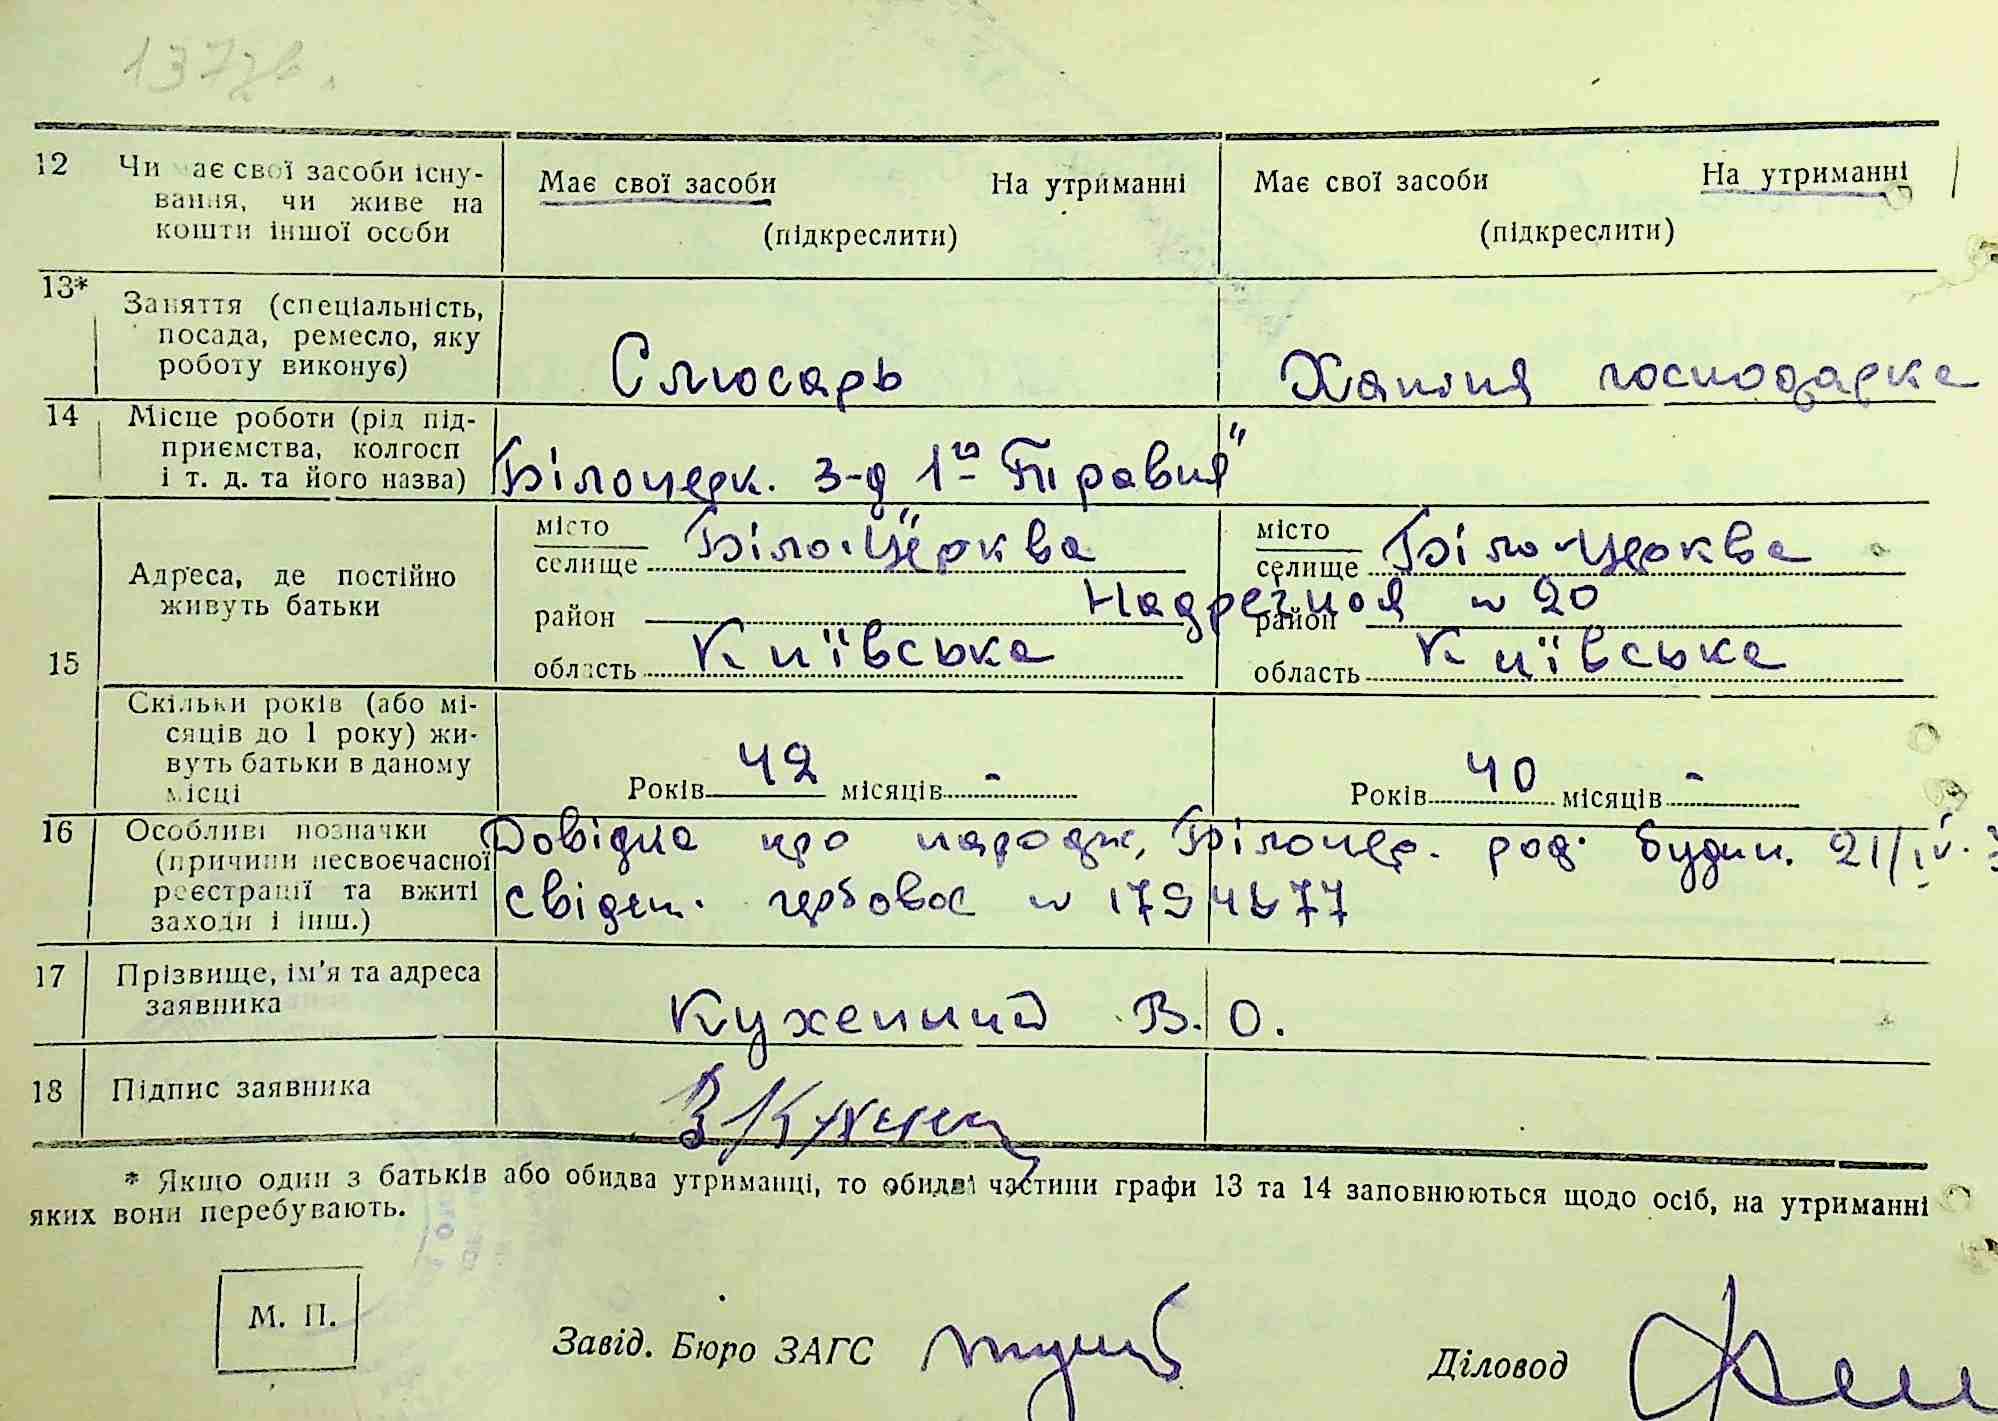 137зв.
12 Чи має свої засоби існу-
вання, чи живе на
кошти іншої особи
Має свої засоби На утриманні
(підкреслити)
Має свої засоби На утриманні
(підкреслити)
13* Заняття (спеціальність,
посада, ремесло, яку
роботу виконує)
Слюсарь
Хатня господарка
14 Місце роботи (рід під-
приємства, колгосп
і т. д. та його назва)
Білоцерк. з-д 1го Травня"
15 Адреса, де постійно
живуть батьки
місто
селище Біло-Церква
район
область Київська
місто
селище Біло-Церква
Надрегная № 20
район
область Київська
Скільки років (або мі-
сяців до 1 року) жи-
вуть батьки в даному
місці
Років 42 місяців -
Років 40 місяців -
16 Особливі позначки
(причини несвоєчасної
реєстрації та вжиті
заходи і інш.)
Довідка про народж. Білоцер. род. будин. 21/IV.
Свідец. гербовое №
17 Прізвище, ім'я та адреса
заявника
Кухенний В. О.
18 Підпис заявника
* Якщо один з батьків або обидва утриманці, то обидві частини графи 13 та 14 заповнюються щодо осіб, на утриманні
яких вони перебувають.
М. П.
Завід. Бюро ЗАГС
Діловод